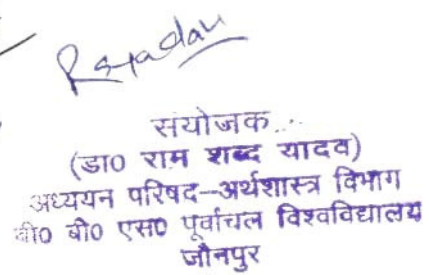 RsYadav
संयोजक
(डा० राम शब्द यादव)
अध्ययन परिषद–अर्थशास्त्र विभाग
वी० बी० एस० पूर्वांचल विश्वविद्यालय
जौनपुर